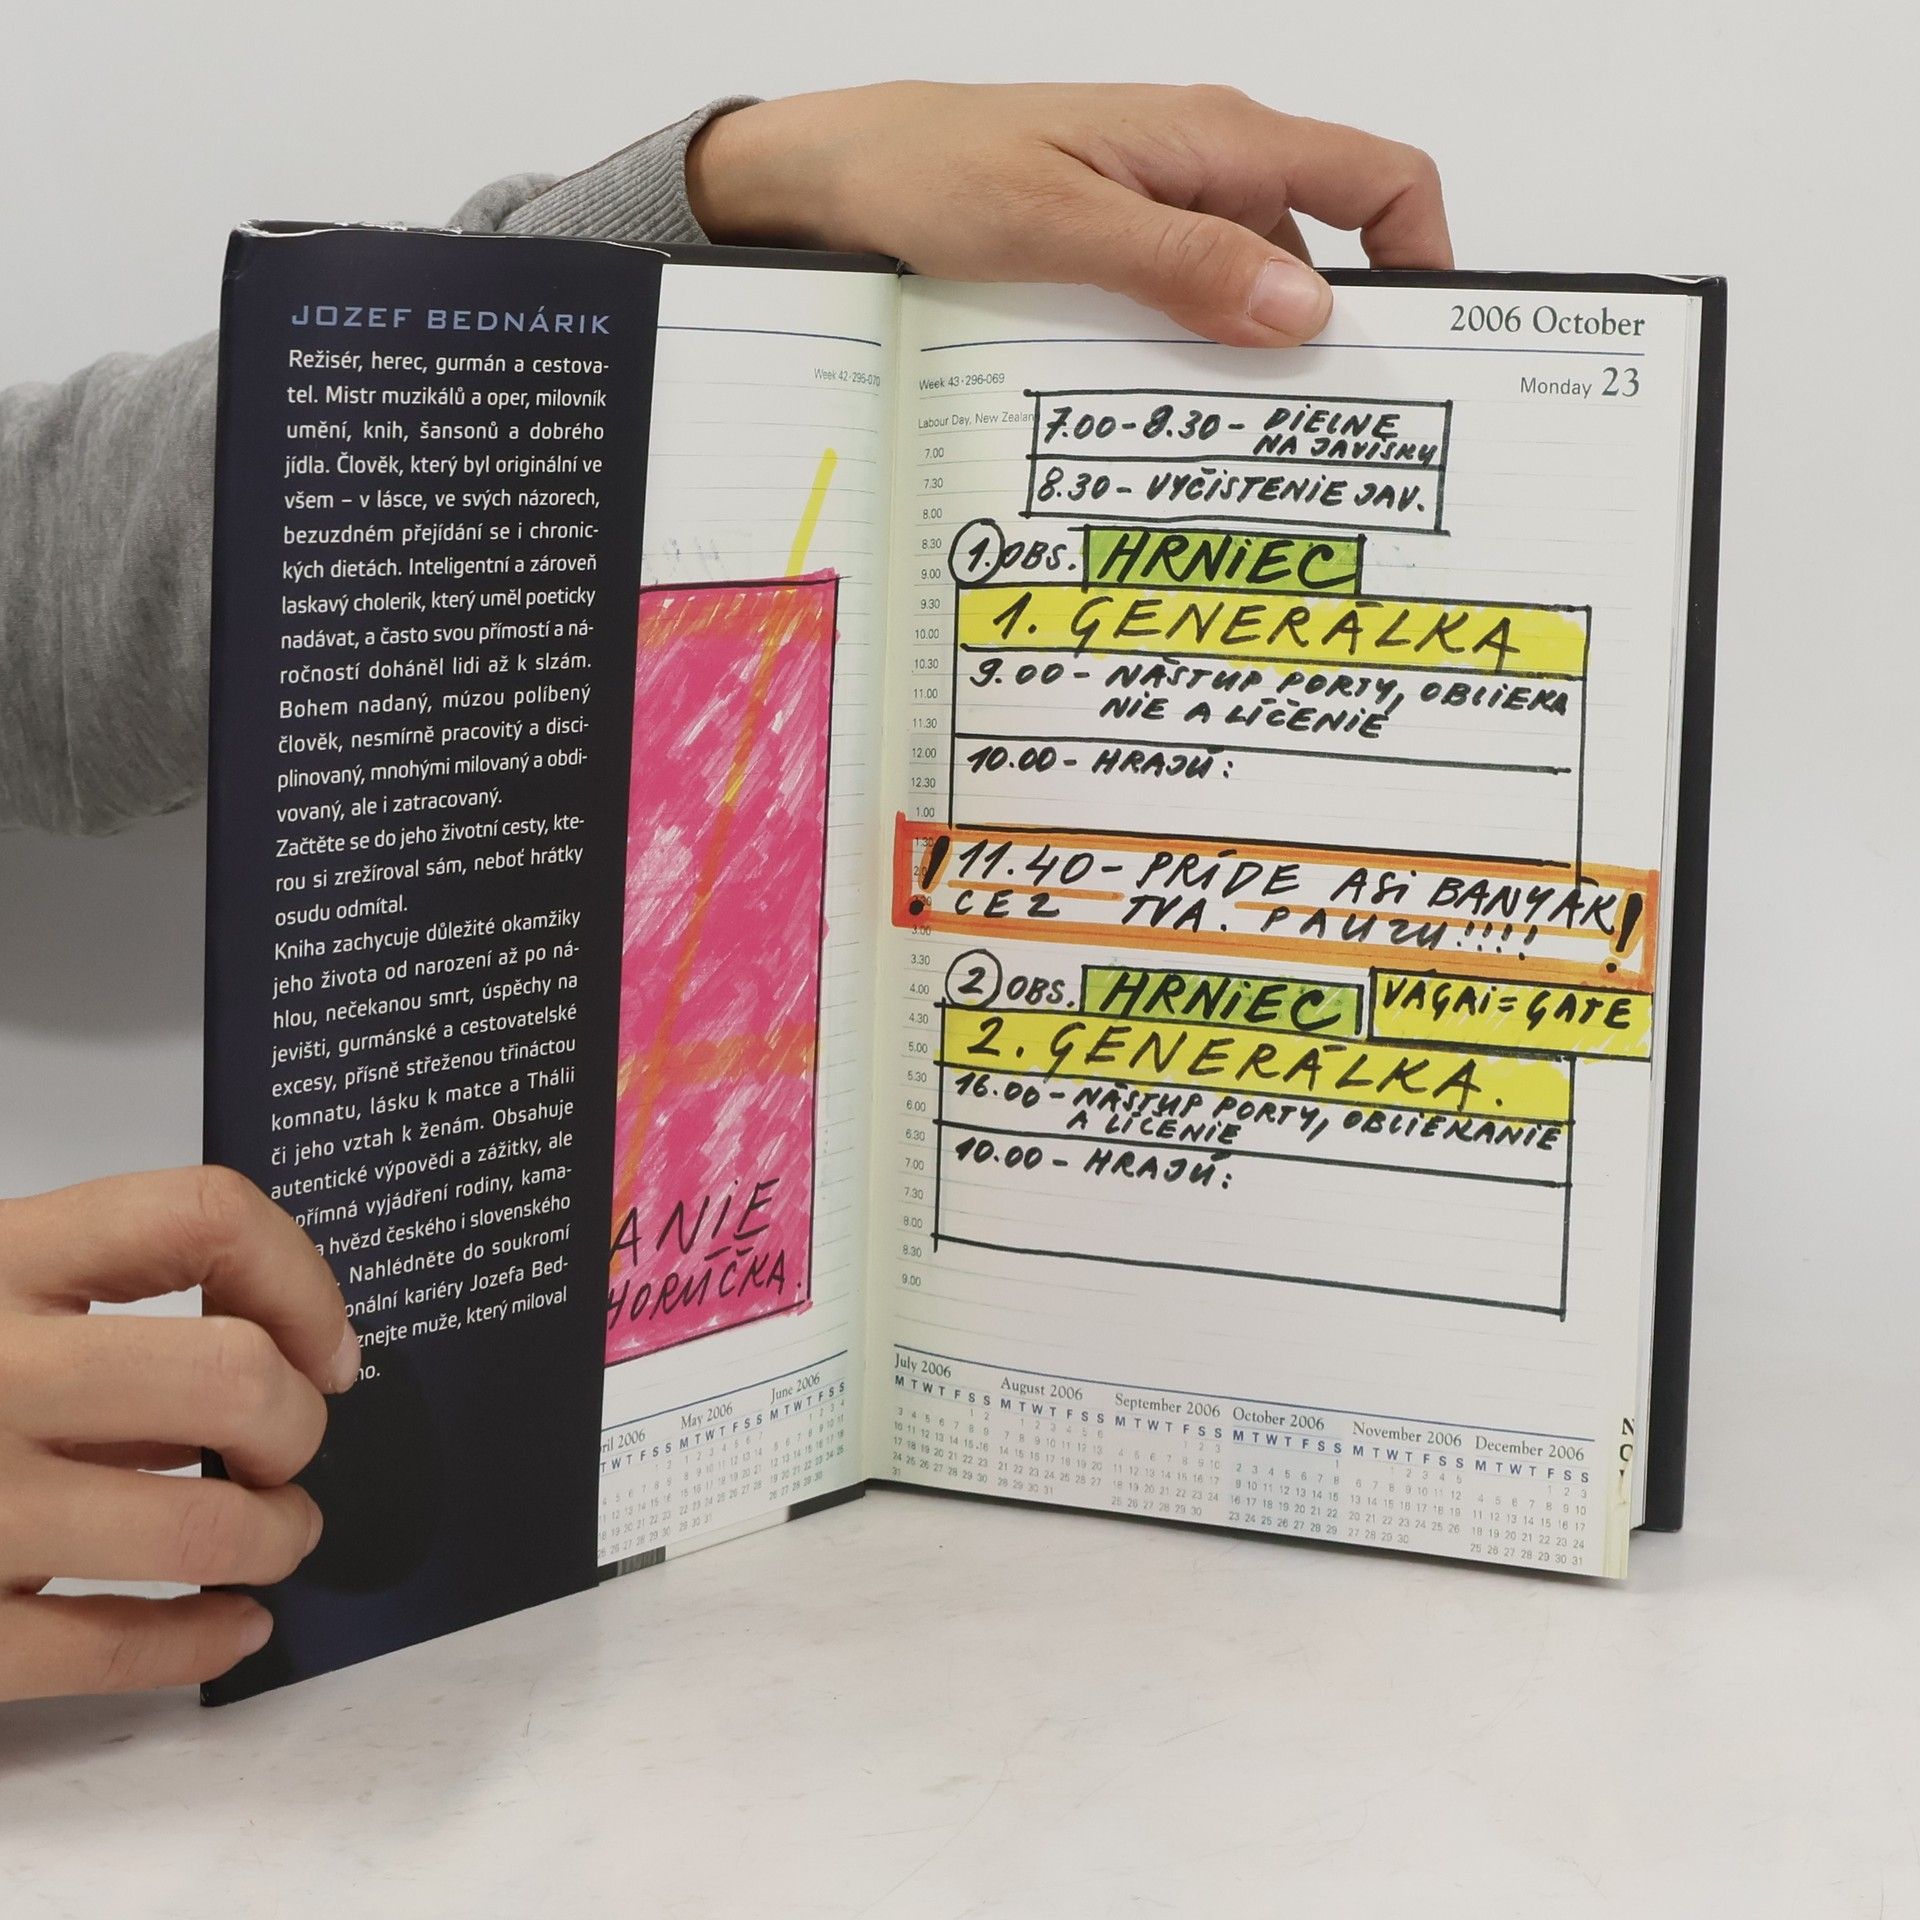 JOZEF BEDNÁRIK
Režisér, herec, gurmán a cestova-
tel. Mistr muzikálů a oper, milovník
umění, knih, šansonů a dobrého
jídla. Člověk, který byl originální ve
všem – v lásce, ve svých názorech,
bezuzdném přejídání se i chronic-
kých dietách. Inteligentní a zároveň
laskavý cholerik, který uměl poeticky
nadávat, a často svou přímostí a ná-
ročností doháněl lidi až k slzám.
Bohem nadaný, múzou políbený
člověk, nesmírně pracovitý a disci-
plinovaný, mnohými milovaný a obdi-
vovaný, ale i zatracovaný.
Začtěte se do jeho životní cesty, kte-
rou si zrežíroval sám, neboť hrátky
osudu odmítal.
Kniha zachycuje důležité okamžiky
jeho života od narození až po ná-
hlou, nečekanou smrt, úspěchy na
jevišti, gurmánské a cestovatelské
excesy, přísně střeženou třináctou
komnatu, lásku k matce a Thálii
či jeho vztah k ženám. Obsahuje
autentické výpovědi a zážitky, ale
přímná vyjádření rodiny, kama-
a hvězd českého i slovenského
. Nahlédněte do soukromí
onální kariéry Jozefa Bed-
znejte muže, který miloval
ho.
Week 42·295-070
ANIE
HORÚČKA.
ril 2006 May 2006 June 2006
2006 October
Week 43·296-069
Monday 23
Labour Day, New Zealan
7.00-8.30- DIELNE
NA JAVISKU
8.30- VYČISTENIE JAV.
1. OBS. HRNIEC
1. GENERÁLKA
9.00- NÁSTUP PORTY, OBLIEKA
NIE A LÍČENIE
10.00- HRAJÚ:
! 11.40- PRÍDE ASI BANYÁK!
CEZ TVA. PAUZU!!!!
2 OBS. HRNIEC VAGAI=GATE
2. GENERÁLKA.
16.00- NÁSTUP PORTY, OBLIEKANIE
A LÍCENIE
10.00- HRAJÚ:
7.00
7.30
8.00
8.30
9.00
9.30
10.00
10.30
11.00
11.30
12.00
12.30
1.00
1.30
3.00
3.30
4.00
4.30
5.00
5.30
6.00
6.30
7.00
7.30
8.00
8.30
9.00
July 2006 August 2006 September 2006 October 2006 November 2006 December 2006
M T W T F S S M T W T F S S M T W T F S S M T W T F S S M T W T F S S M T W T F S S